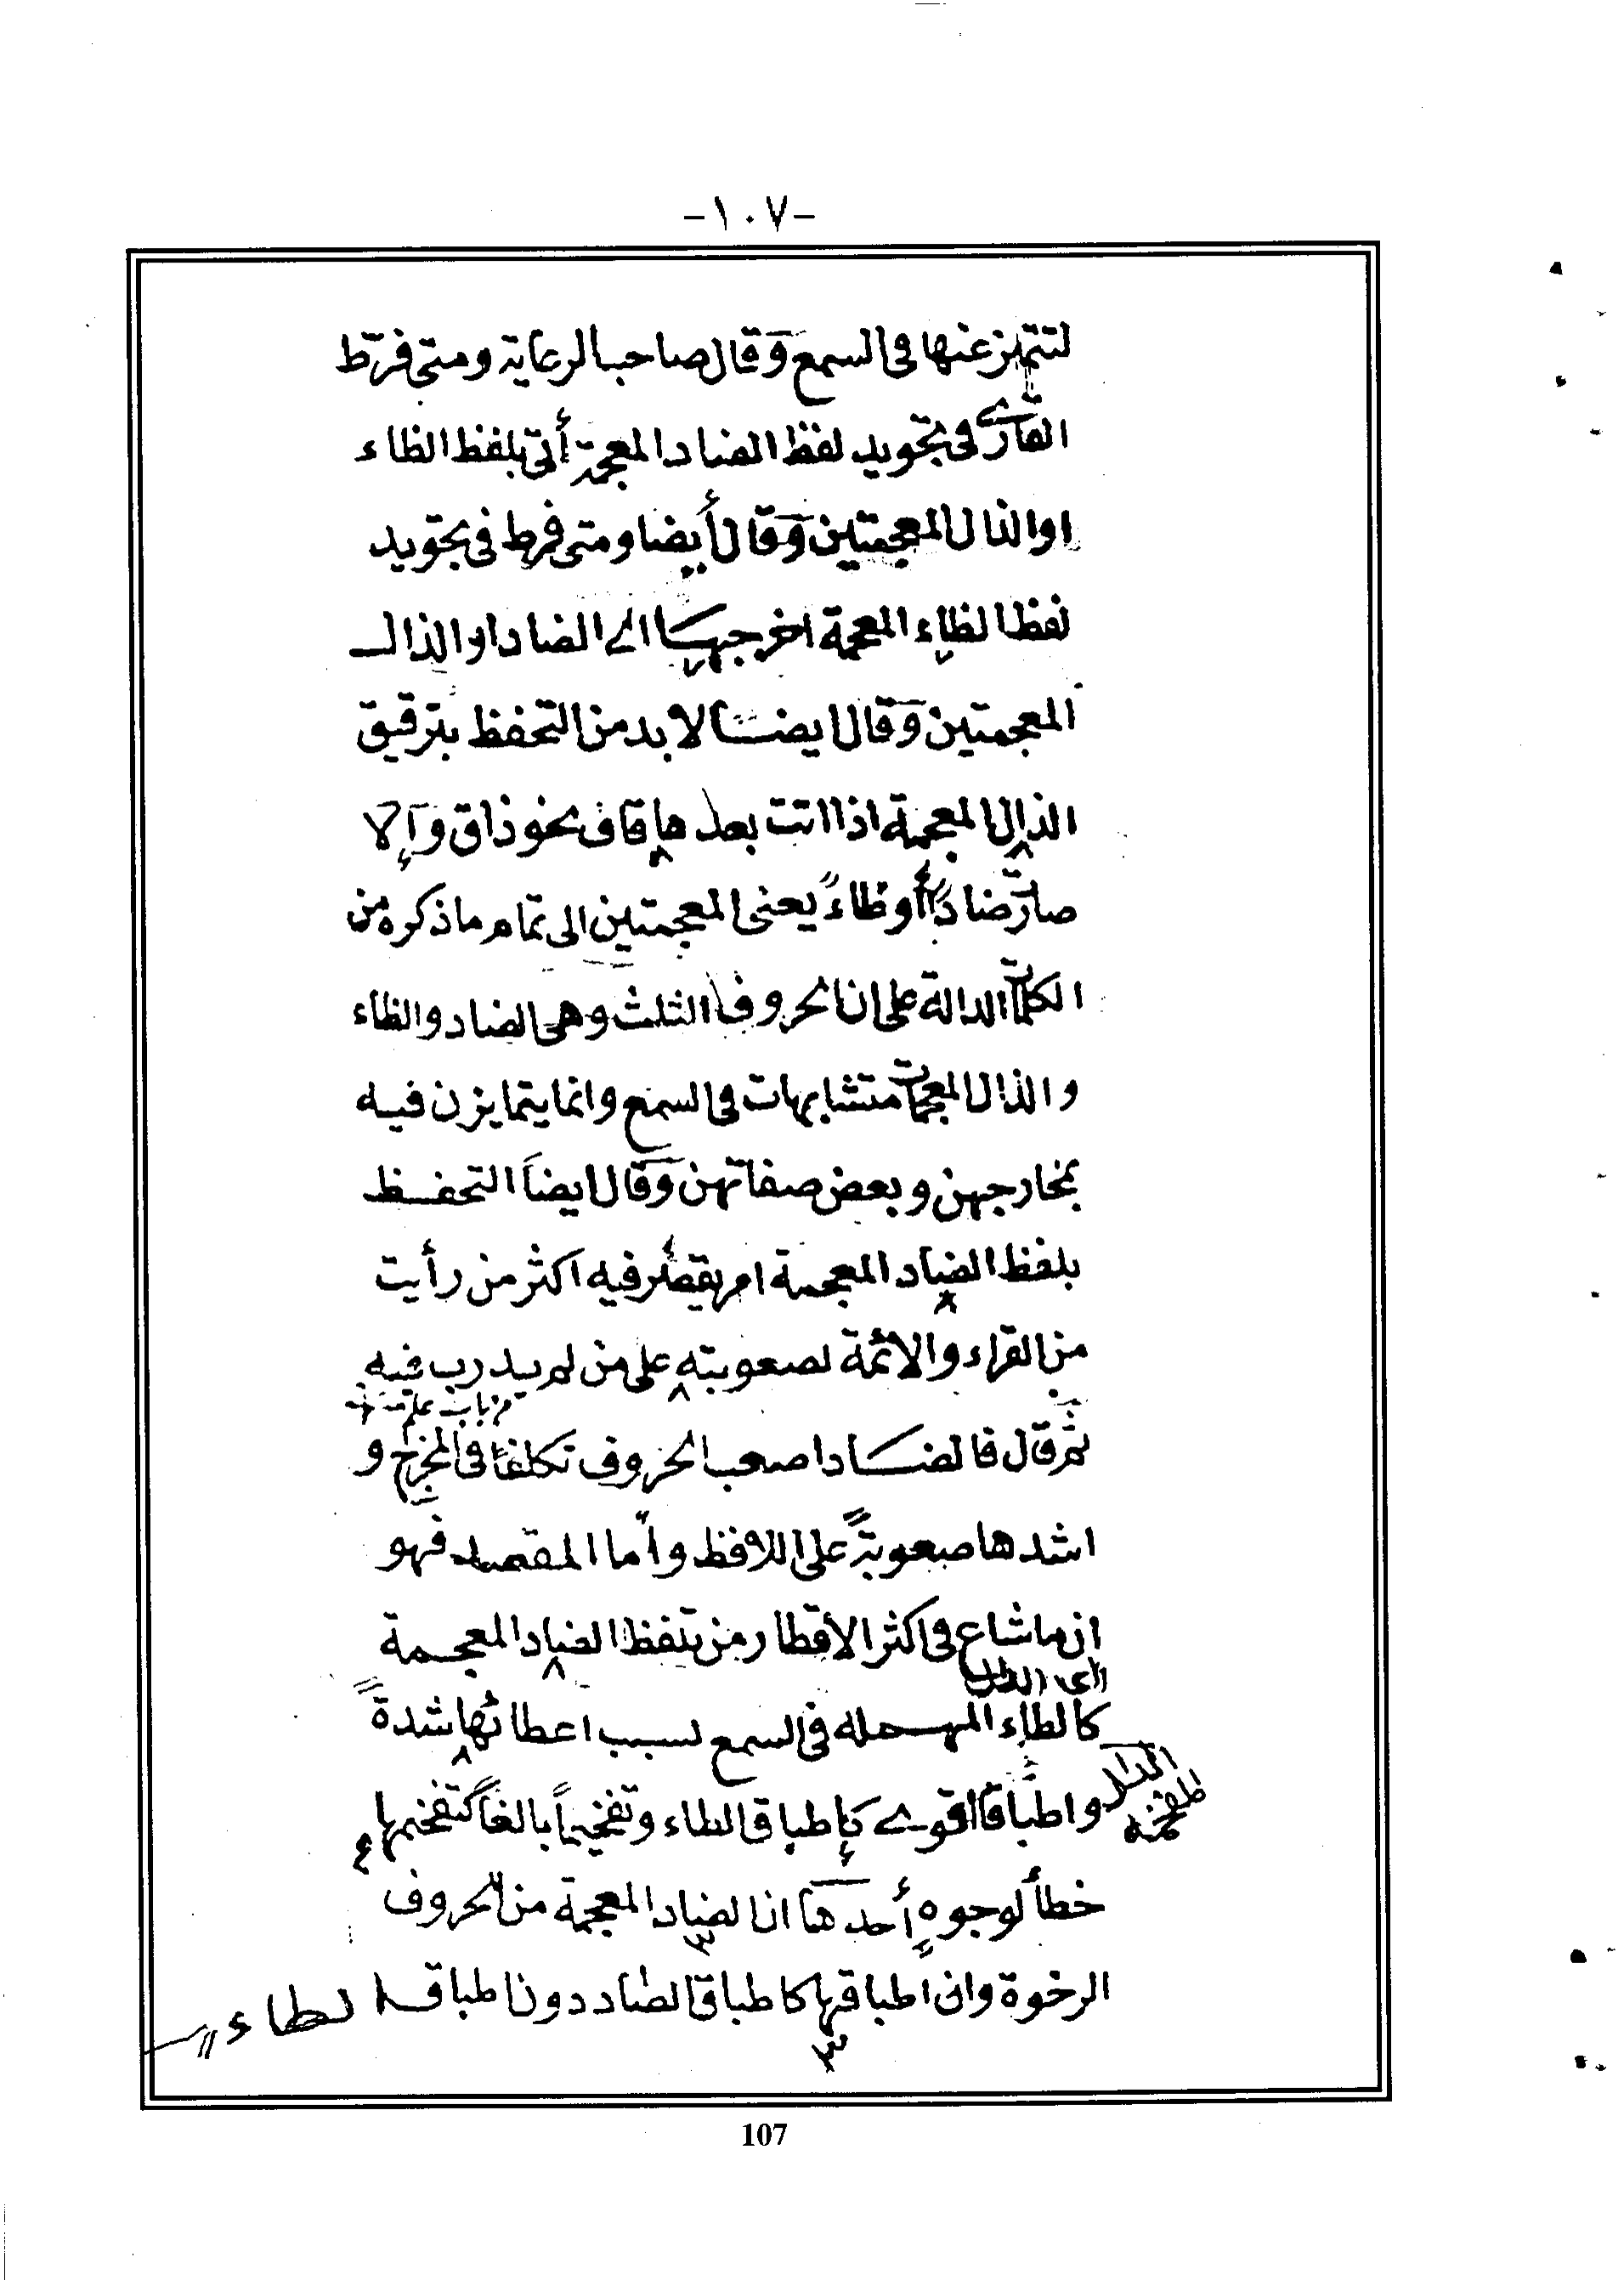 -١٠٧-
لتتميز عنها فى السمع وقال صاحب الرعاية ومتى فرّط
القارئ فى تجويد لفظ الضاد المعجمة أتى بلفظ الظاء
اوالذال المعجمتين وقال أيضا ومتى فرط فى تجويد
لفظ الظاء المعجمة اخرجها الى الضاد او الذال
المعجمتين وقال ايضا لا بد من التحفظ بترقيق
الذال المعجمة اذا اتت بعدها قاف نحو ذاق وإلا
صارت ضادًا أوظاءً يعنى المعجمتين الى تمام ما ذكره من
الكلمات الدالة على ان الحروف الثلث وهى الضاد والظاء
والذال المعجمات متشابهات فى السمع وانما يتمايزن فيه
بمخارجهن وبعض صفاتهن وقال ايضاً التحفظ
بلفظ الضاد المعجمة امر يقصر فيه اكثر من رأيت
من القراء والائمة لصعوبته على من لم يدرب فيه
من باب علم
ثم قال فالضاد اصعب الحروف تكلفاً فى المخرج و
اشدها صعوبةً على اللافظ وأما المقصد فهو
ان ما شاع فى اكثر الأقطار من تلفظ الضاد المعجمة
كالطاء المهملة فى السمع لسبب اعطائها شدةً
واطباقا اقوى كإطباق الطاء وتفخيماً بالغاً كتفخيمها
المفخمة
خطأ لوجوهٍ أحدها ان الضاد المعجمة من الحروف
الرخوة وان اطباقها كاطباق الصاد دون اطباق الطاء
107